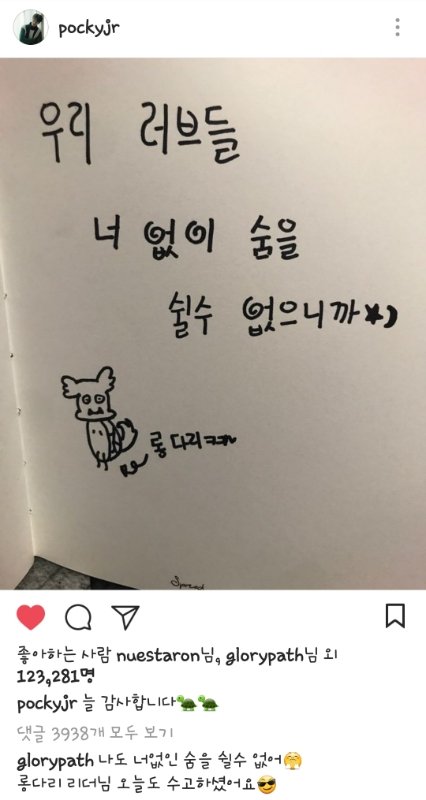 pockyjr
우리 러브들
너 없이 숨을
쉴수 없으니까
롱다리ㅋㅋ
좋아하는 사람 nuestaron님, glorypath님 외
123,281명
pockyjr 늘 감사합니다🐢🐢
댓글 3938개 모두 보기
glorypath 나도 너없인 숨을 쉴수 없어😤
롱다리 리더님 오늘도 수고하셨어요😎